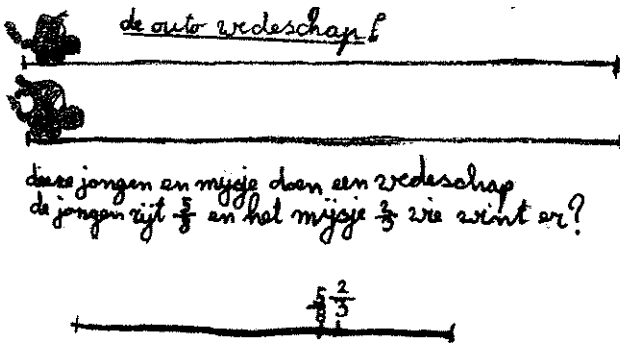 de outo wedeschap!
deze jongen en mijsje doen een wedeschap
de jongen rijt 5/8 en het mijsje 2/3 wie wint er?
5/8 2/3